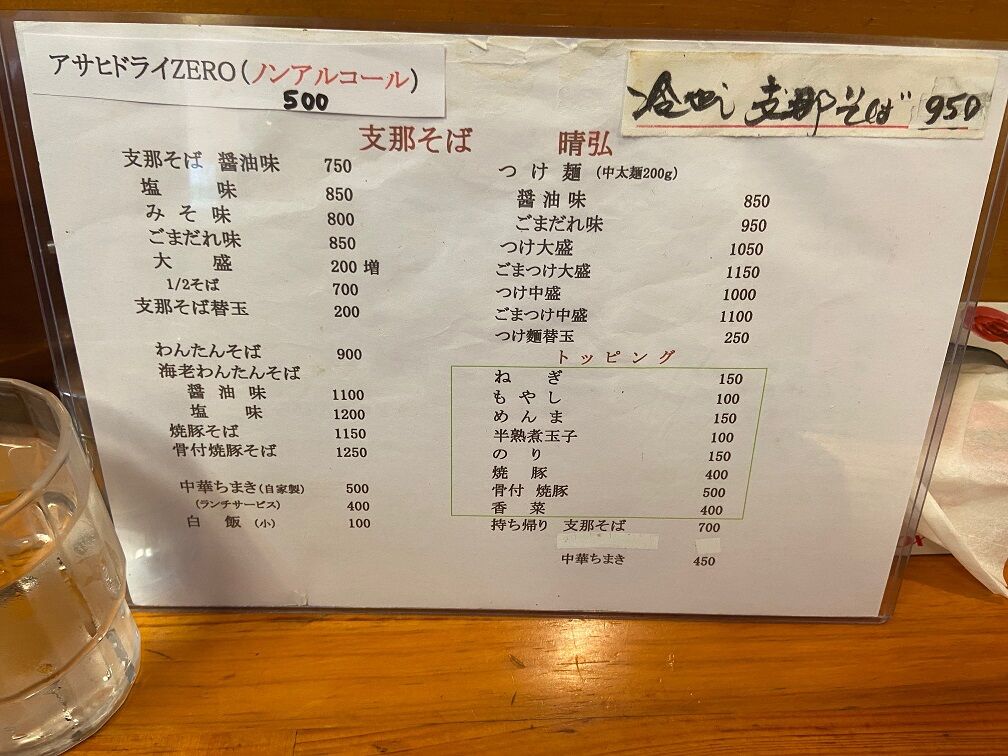 アサヒドライZERO(ノンアルコール)
500
冷やし 支那そば 950
支那そば 晴弘
支那そば 醤油味 750
塩 味 850
みそ味 800
ごまだれ味 850
大 盛 200 増
1/2そば 700
支那そば替玉 200
わんたんそば 900
海老わんたんそば
醤油味 1100
塩 味 1200
焼豚そば 1150
骨付焼豚そば 1250
中華ちまき(自家製) 500
(ランチサービス) 400
白 飯 (小) 100
つ け 麺 (中太麺200g)
醤油味 850
ごまだれ味 950
つけ大盛 1050
ごまつけ大盛 1150
つけ中盛 1000
ごまつけ中盛 1100
つけ麺替玉 250
トッピング
ね ぎ 150
もやし 100
めんま 150
半熟煮玉子 100
の り 150
焼 豚 400
骨付 焼豚 500
香 菜 400
持ち帰り 支那そば 700
中華ちまき 450